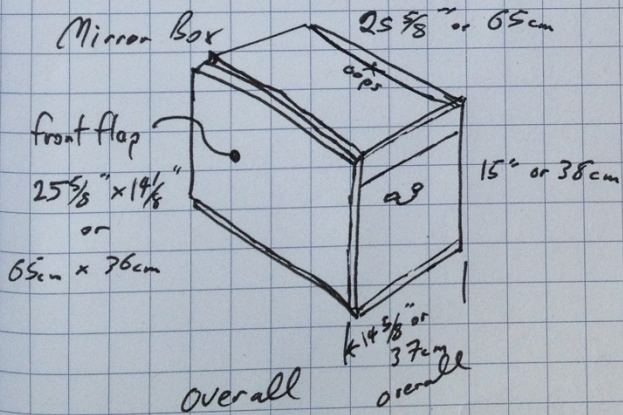 Mirror Box
25 5/8" or 65cm
oops
front flap
25 5/8" x 14 1/8"
or
65cm x 36cm
15" or 38cm
14 5/8" or
37cm
overall
overall